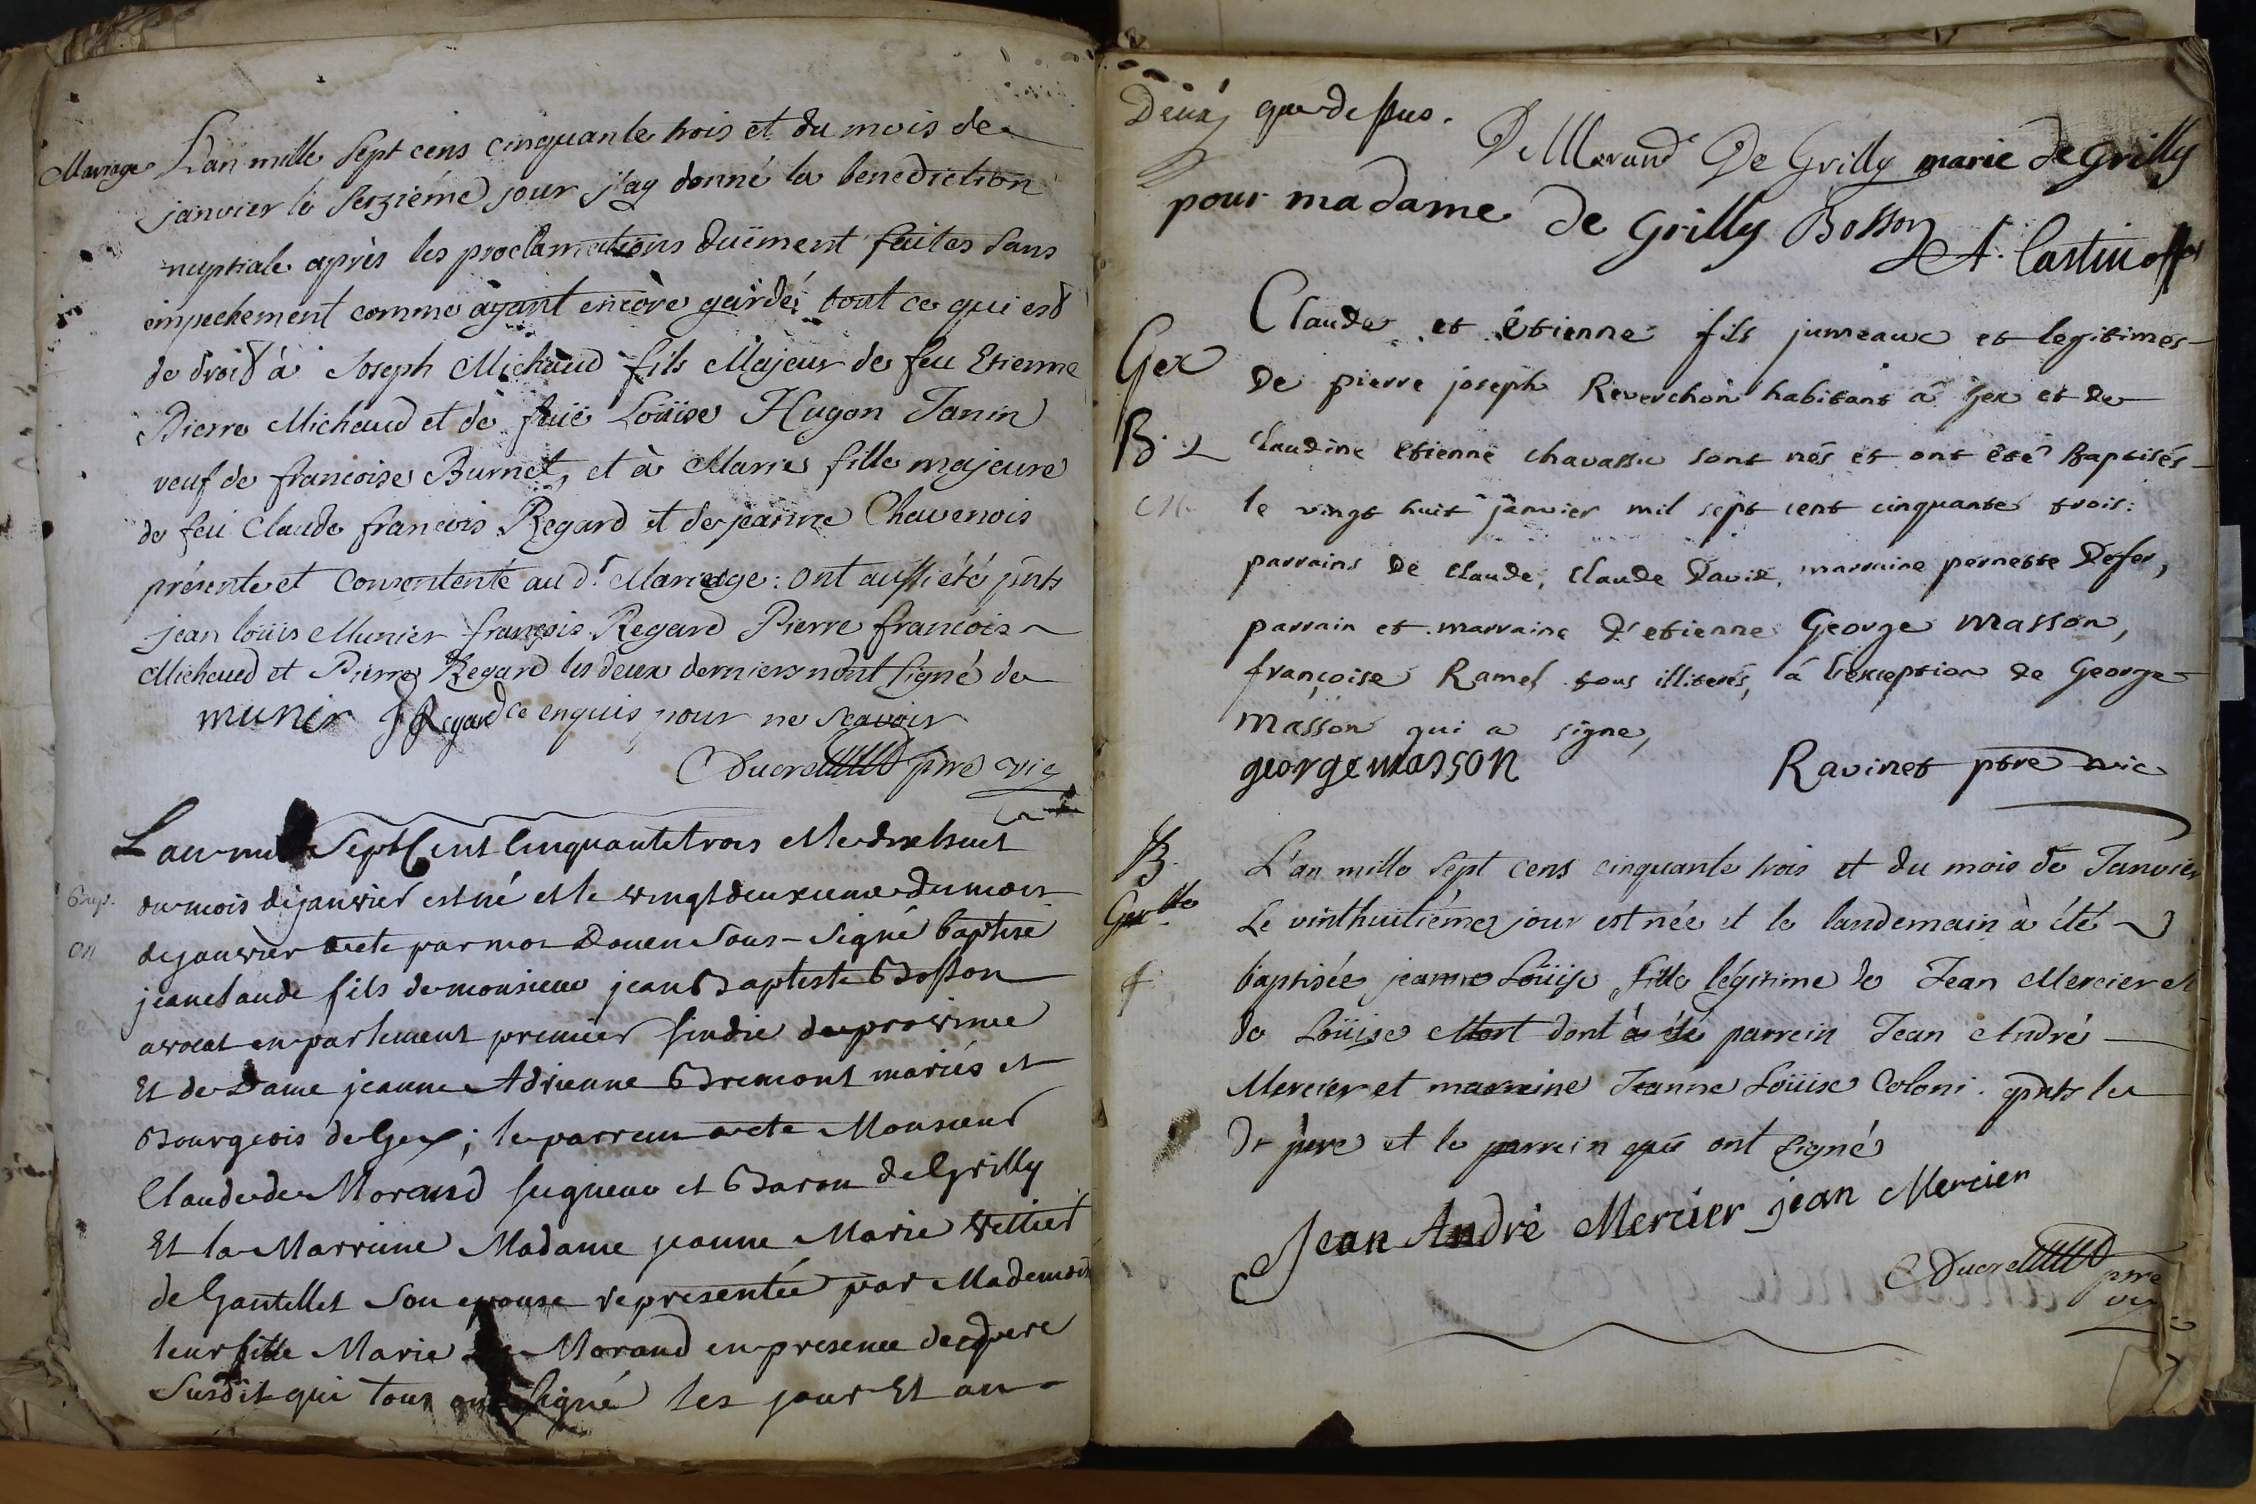 Mariage L'an mille sept cens cinquante trois et du mois de
janvier le seizième jour j'ay donné la benediction
nuptiale après les proclamations duëment faites sans
empechement comme ayant encore gardé tout ce qui est
de droit à Joseph Michaud fils Majeur de feu Etienne
Pierre Michaud et de feuë Loüise Hugon Janin
veuf de francoise Burnet, et à Marie fille majeure
de feu Claude francois Regard et de jeanne Chavenois
présente et consentente au dt. Mariage: ont aussi été pnts
jean loüis Munier françois Regard Pierre francois
Michaud et Pierre Regard les deux derniers n'ont signé de
munier f Regard ce enquis pour ne scavoir
Ducret ptre vic
L an mil Sept Cent Cinquante trois et le dix huit
Bap. du mois de janvier est né et le vingt deuxieme du mois
de janvier a ete par moi Doyen sous-signé baptisé
jean claude fils de monsieur jean Baptiste Bosson
avocat en parlement premier sindic de province
Et de Dame jeanne Adrienne Bremont mariés et
Bourgeois de Gex; le parrein a ete Monsieur
Claude de Morand seigneur et Baron de Grilly
Et la Marreine Madame jeanne Marie
de Gantellet son epouse representée par Mademois
leur fille Marie de Morand en presence de pere
susdit qui tous ont signé les jour Et an
que dessus.
De Morand De Grilly marie de grilly
pour madame de grilly Bosson
Claude et étienne fils jumeaux et legitimes
Gex
De pierre joseph Reverchon habitant à Gex et de
B. 2 Claudine etienne chavassu sont nés et ont été Baptisés
le vingt huit janvier mil sept cent cinquante trois:
parrains de claude, claude David, marraine pernette Defer,
parrain et marraine d'etienne George masson,
françoise Ramel tous illiterés, à l'exception de George
masson qui a signe,
george masson Ravinet ptre vic
B. L'an mille sept cens cinquante trois et du mois de Janvier
Le vinthuitième jour est née et le landemain à été
f baptisée jeanne Loüise fille légitime de Jean Mercier et
de Loüise Mort dont à été parrein Jean André
Mercier et marreine Jeanne Loüise Coloni. pnts le
dt père et le parrein qui ont signé
Jean André Mercier jean Mercier
Ducret ptre
vic